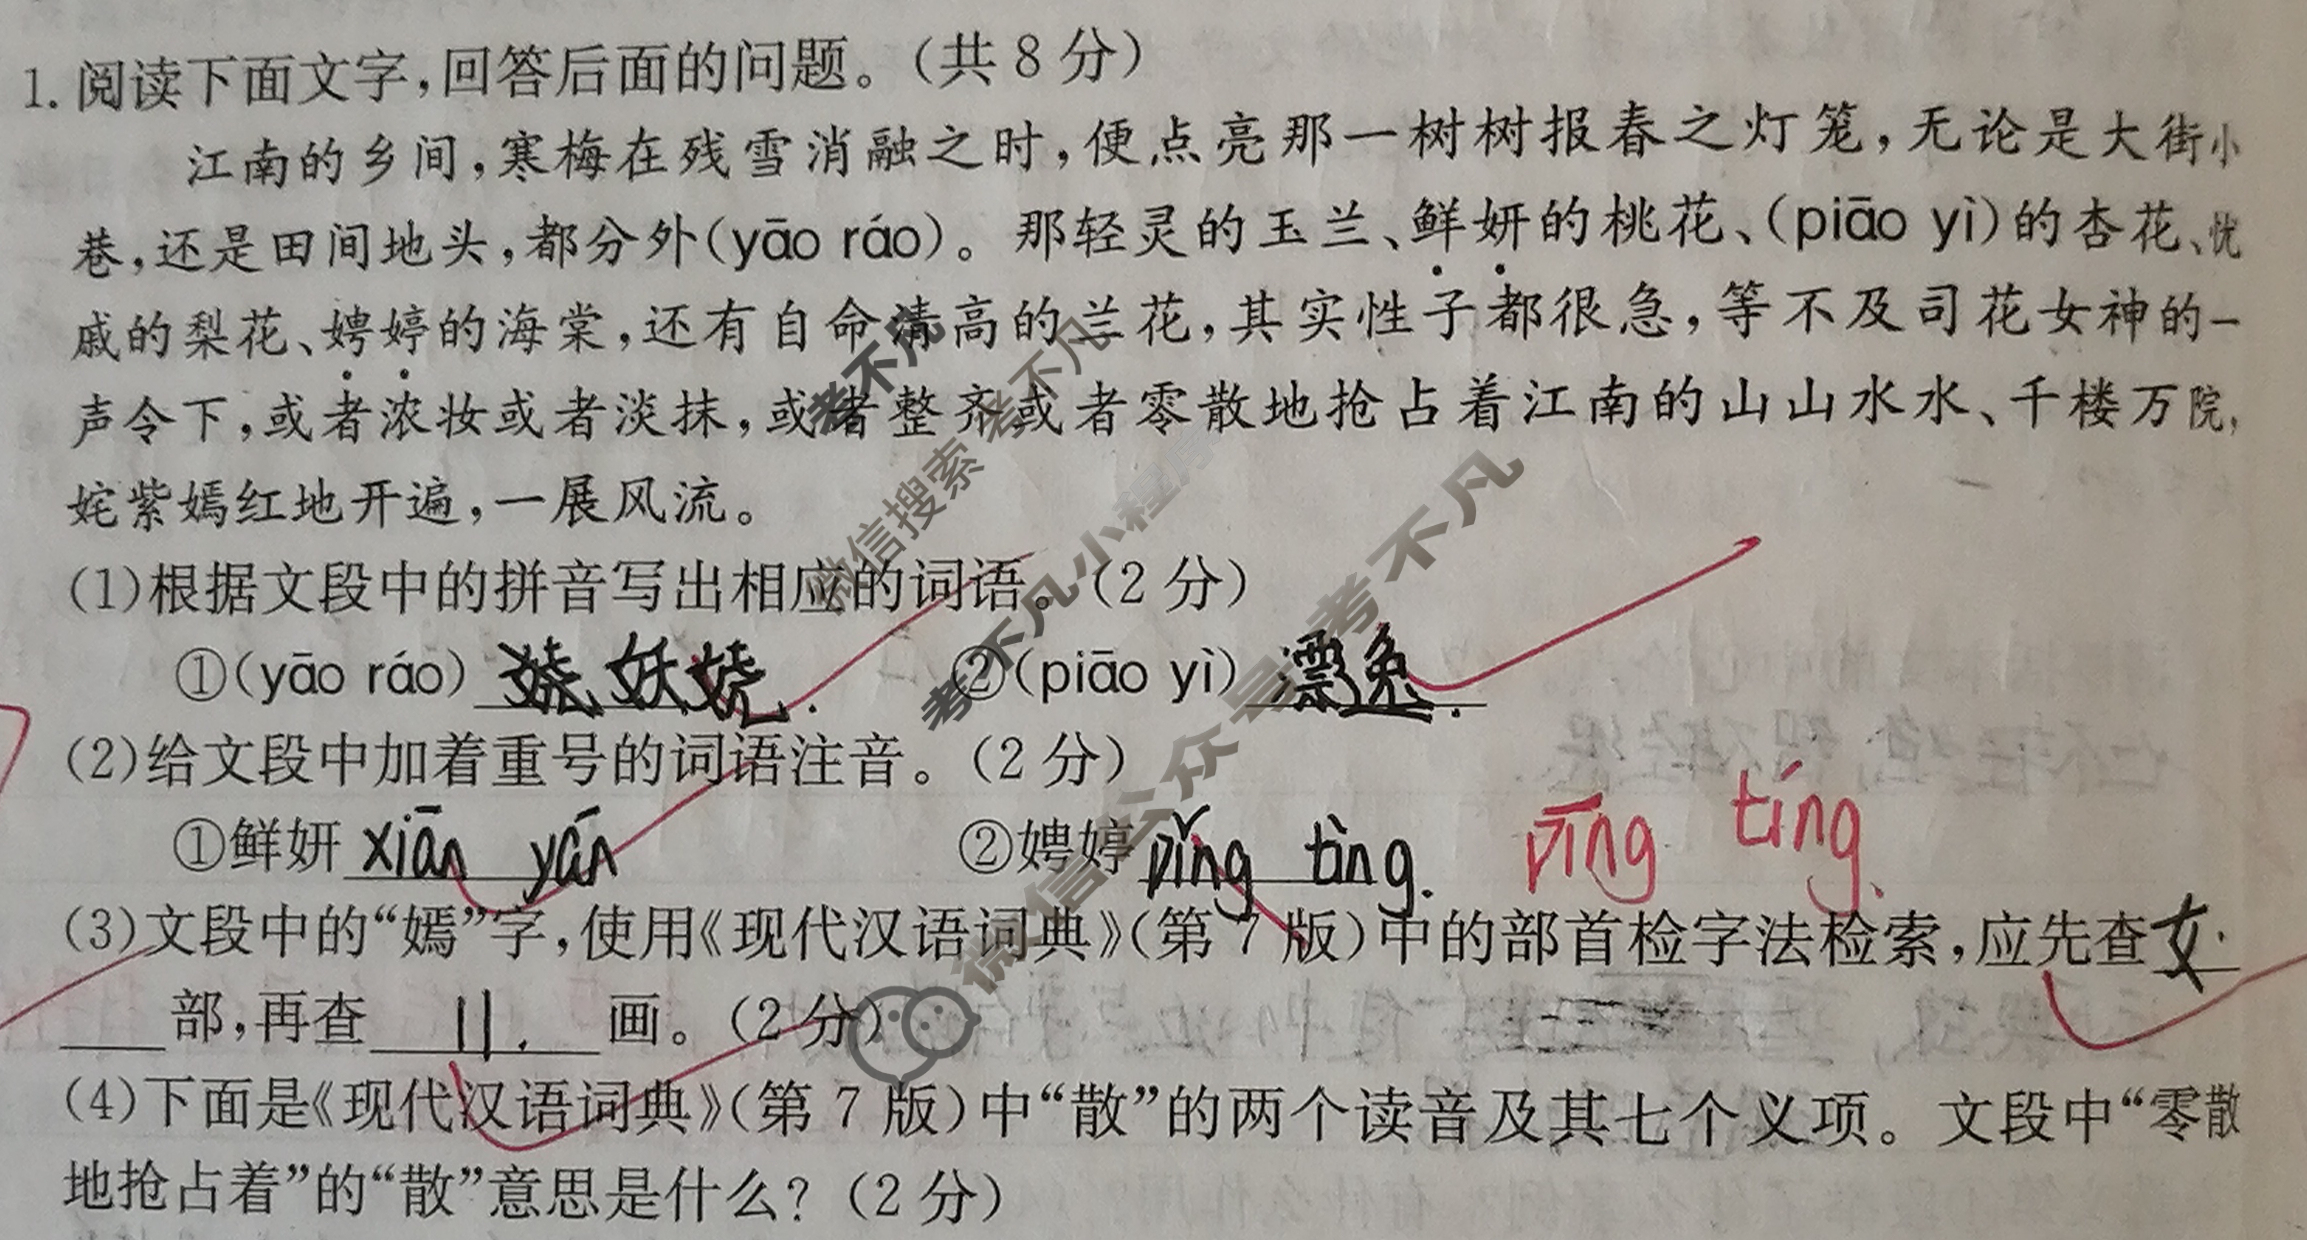 1. 阅读下面文字,回答后面的问题。(共 8 分)
江南的乡间,寒梅在残雪消融之时,便点亮那一树树报春之灯笼,无论是大街小
巷,还是田间地头,都分外(yāo ráo)。那轻灵的玉兰、鲜妍的桃花、(piāo yì)的杏花、忧
戚的梨花、娉婷的海棠,还有自命清高的兰花,其实性子都很急,等不及司花女神的一
声令下,或者浓妆或者淡抹,或者整齐或者零散地抢占着江南的山山水水、千楼万院,
姹紫嫣红地开遍,一展风流。
(1)根据文段中的拼音写出相应的词语。(2 分)
①(yāo ráo) 娆 妖娆. ②(piāo yì)
(2)给文段中加着重号的词语注音。(2 分)
①鲜妍 xiān yán ②娉婷 pǐng tìng. pīng tíng.
(3)文段中的“嫣”字,使用《现代汉语词典》(第 7 版)中的部首检字法检索,应先查女
部,再查 11. 画。(2 分)
(4)下面是《现代汉语词典》(第 7 版)中“散”的两个读音及其七个义项。文段中“零散
地抢占着”的“散”意思是什么?(2 分)
考不凡
微信搜索 考不凡
考不凡小程序
微信公众号 考不凡